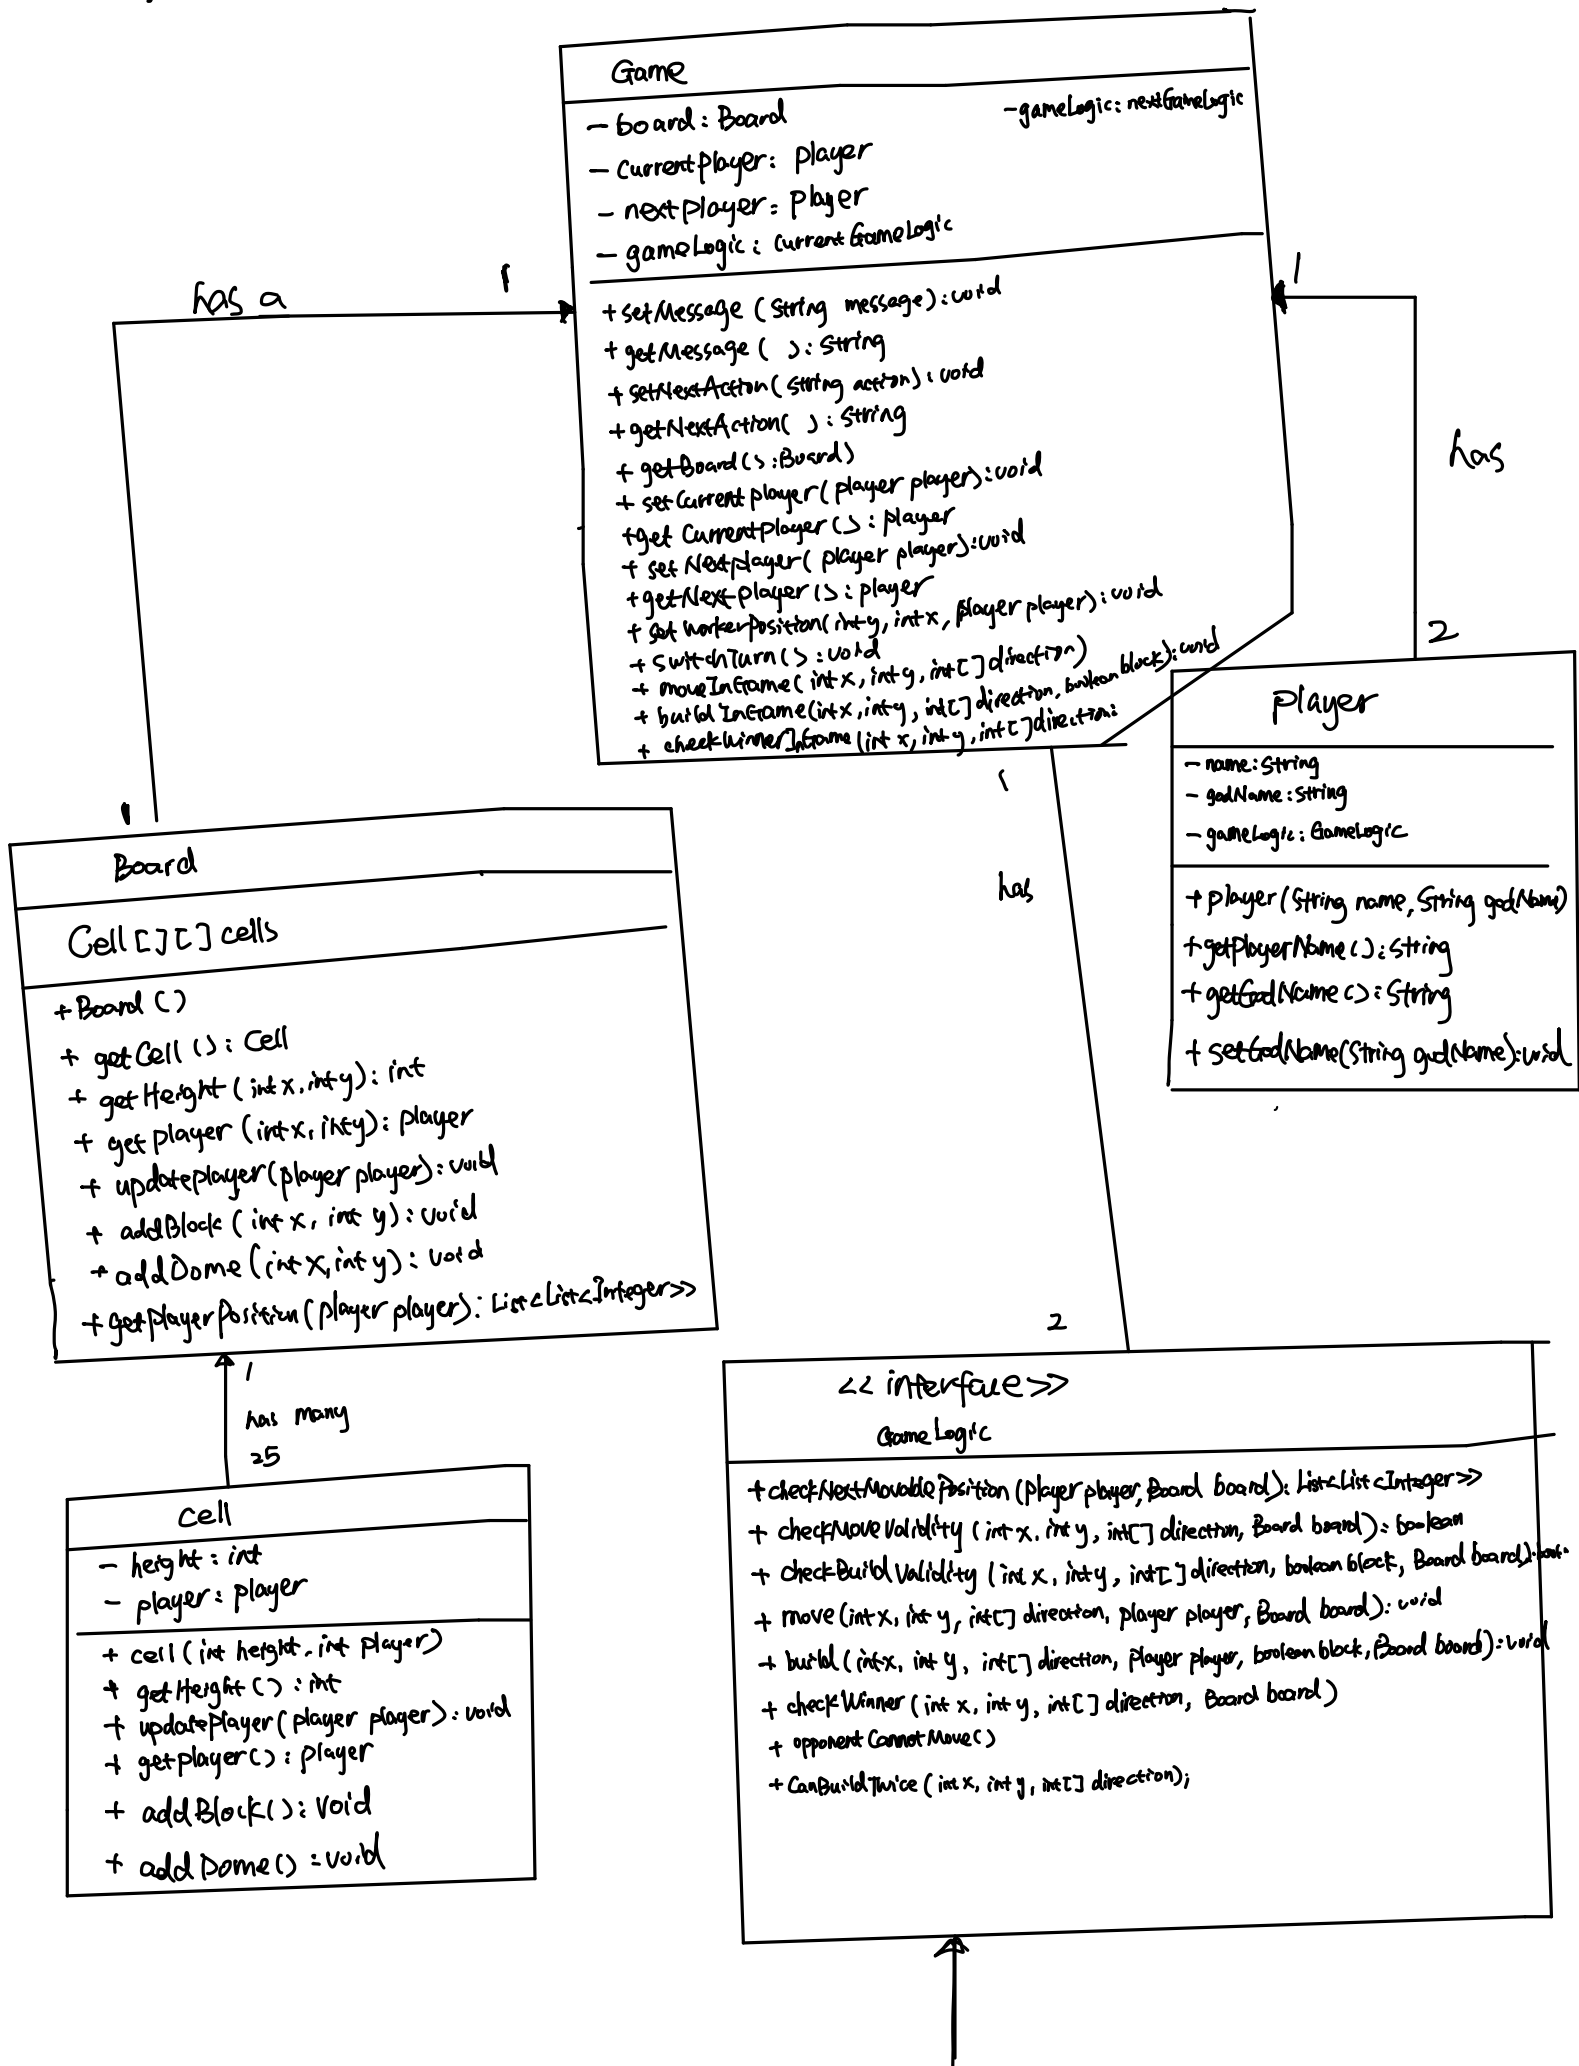 Game
- board: Board
- gameLogic: nextGameLogic
- currentPlayer: player
- nextplayer: player
- gameLogic: currentGameLogic
has a
1
1
+ setMessage (String message): void
+ getMessage ( ): String
+ setNextAction( String action): void
+ getNextAction( ): String
+ getBoard(): Board)
+ setCurrent player( player player): void
+ get CurrentPlayer (): player
+ set Nextplayer( player player): void
+ getNextplayer (): player
+ set WorkerPosition( int y, int x, player player): void
+ SwitchTurn(): void
+ moveInGame( int x, int y, int[] direction)
+ build InGame(int x, int y, int[] direction, boolean block): void
+ checkWinnerInGame (int x, int y, int[] direction:
has
2
player
- name: String
- godName: String
- gameLogic: GameLogic
+ player (String name, String godName)
+ getPlayerName (): String
+ getGodName (): String
+ setGodName(String godName): void
1
Board
Cell[][] cells
+ Board ()
+ getCell (): Cell
+ getHeight (int x, int y): int
+ getplayer (int x, int y): player
+ updateplayer(player player): void
+ addBlock (int x, int y): void
+ addDome (int x, int y): void
+ getplayerPosition (player player): List<List<Integer>>
1
has
2
1
has many
25
cell
- height: int
- player: player
+ cell (int height, int player)
+ getHeight (): int
+ updatePlayer (player player): void
+ getplayer(): player
+ addBlock(): Void
+ addDome(): void
<< interface >>
GameLogic
+ checkNextMovablePosition (player player, Board board): List<List<Integer>>
+ checkMoveValidity (int x, int y, int[] direction, Board board): boolean
+ checkBuildValidity (int x, int y, int[] direction, boolean block, Board board):
+ move (int x, int y, int[] direction, player player, Board board): void
+ build (int x, int y, int[] direction, player player, boolean block, Board board): void
+ checkWinner (int x, int y, int[] direction, Board board)
+ opponentCannotMove()
+ CanBuildTwice (int x, int y, int[] direction);